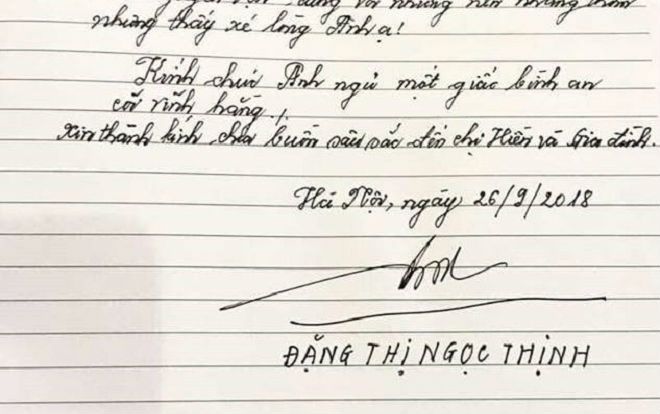 những thấy xé lòng Anh ạ!
Kính chúc Anh ngủ một giấc bình an
cõi vĩnh hằng!
Xin thành kính chia buồn sâu sắc đến chị Hiền và Gia đình.
Hà Nội, ngày 26/9/2018
ĐẶNG THỊ NGỌC THỊNH